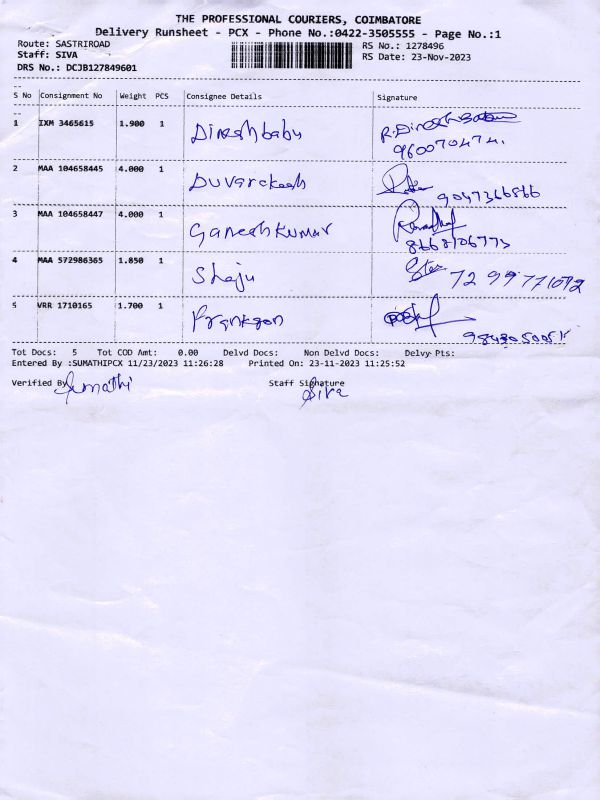 THE PROFESSIONAL COURIERS, COIMBATORE
Delivery Runsheet - PCX - Phone No.:0422-3505555 - Page No.:1
Route: SASTRIROAD RS No.: 1278496
Staff: SIVA RS Date: 23-Nov-2023
DRS No.: DCJB127849601
S No Consignment No Weight PCS Consignee Details Signature
1 IXM 3465615 1.900 1 Dineshbabu R.Dinesh Babu
9600704741
2 MAA 104658445 4.000 1 Duvarckesh
9047366566
3 MAA 104658447 4.000 1 Ganesh Kumar
8668106773
4 MAA 572986365 1.850 1 Shaju 7299771092
5 VRR 1710165 1.700 1
Tot Docs: 5 Tot COD Amt: 0.00 Delvd Docs: Non Delvd Docs: Delvy Pts:
Entered By :SUMATHIPCX 11/23/2023 11:26:28 Printed On: 23-11-2023 11:25:52
Verified By Sumathi Staff Signature
Siva